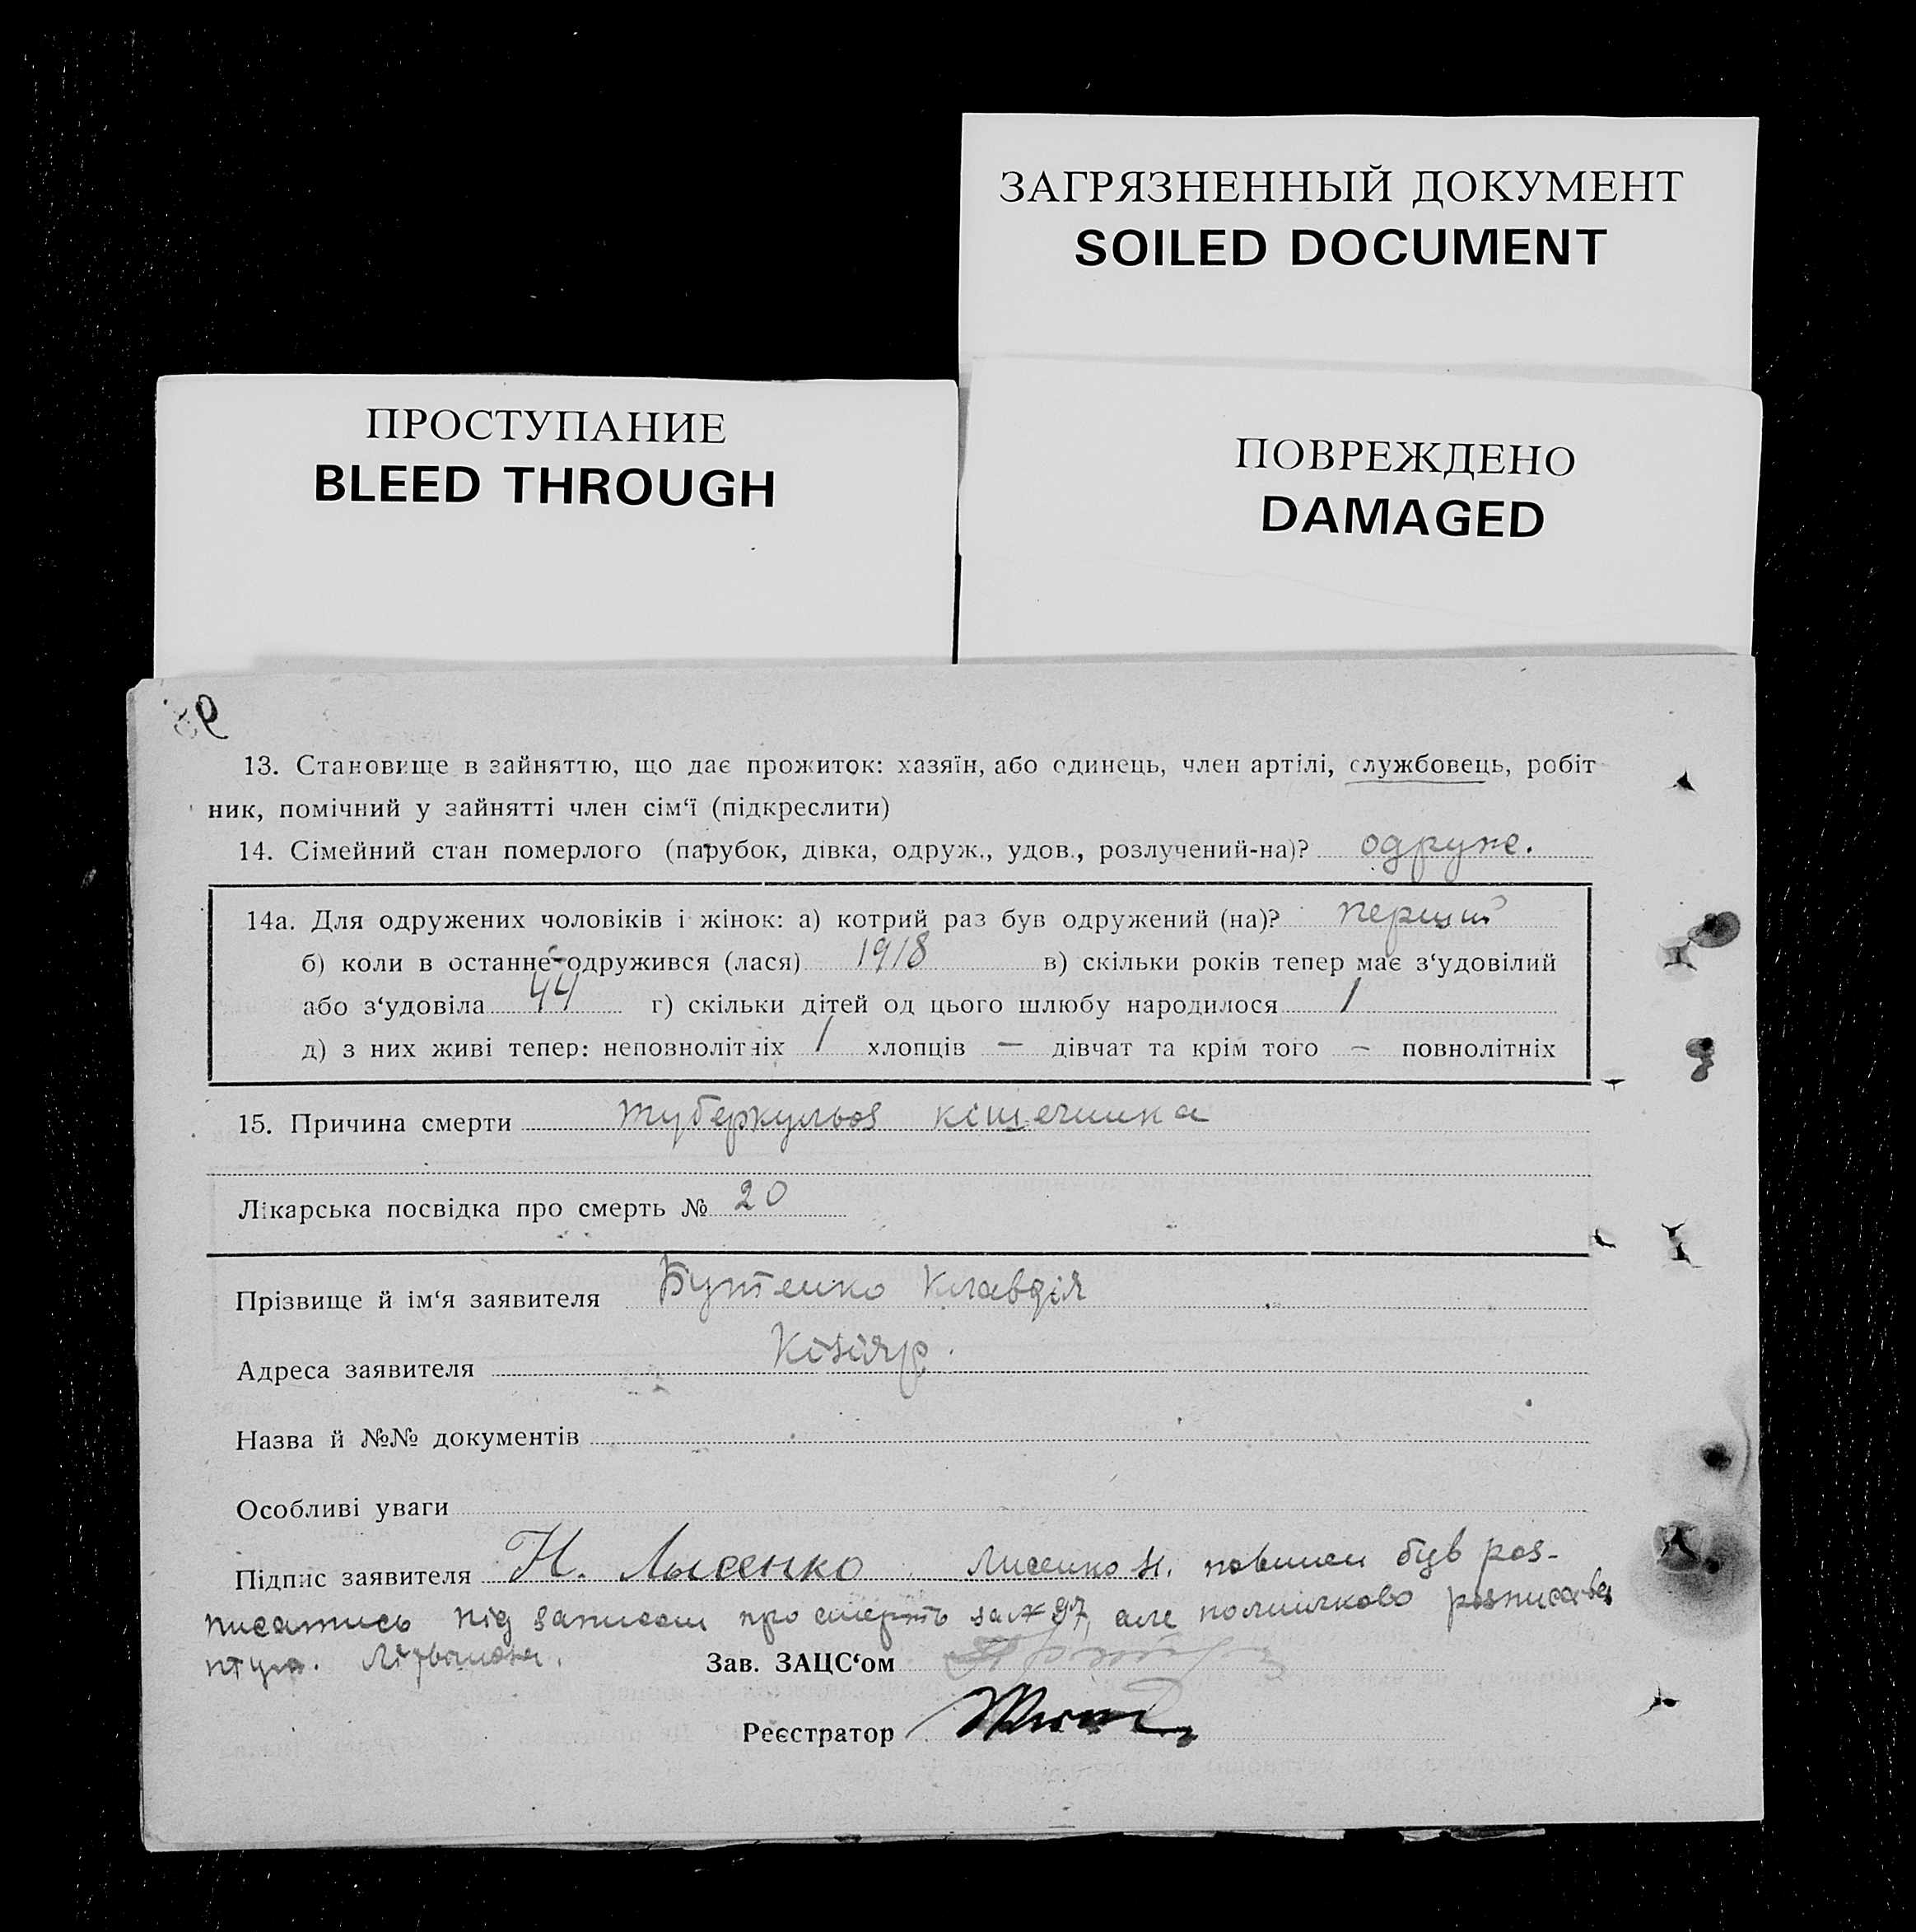 ЗАГРЯЗНЕННЫЙ ДОКУМЕНТ
SOILED DOCUMENT
ПРОСТУПАНИЕ
BLEED THROUGH
ПОВРЕЖДЕНО
DAMAGED
13. Становище в зайняттю, що дає прожиток: хазяїн, або одинець, член артілі, службовець, робіт
ник, помічний у зайнятті член сім‘ї (підкреслити)
14. Сімейний стан померлого (парубок, дівка, одруж., удов., розлучений-на)? одруже.
14а. Для одружених чоловіків і жінок: а) котрий раз був одружений (на)? перший
б) коли в останнє одружився (лася) 1918 в) скільки років тепер має з‘удовілий
або з‘удовіла 44 г) скільки дітей од цього шлюбу народилося 1
д) з них живі тепер: неповнолітніх 1 хлопців — дівчат та крім того – повнолітніх
15. Причина смерти туберкульоз кішечника
Лікарська посвідка про смерть № 20
Прізвище й ім‘я заявителя Бутенко Клавдія
Адреса заявителя Кізіяр.
Назва й №№ документів
Особливі уваги
Підпис заявителя Н. Лысенко Лисенко Н. повинен був роз-
писатись під записом про смерть за № 97, але помилково розписався
тут.
Зав. ЗАЦС‘ом
Реєстратор